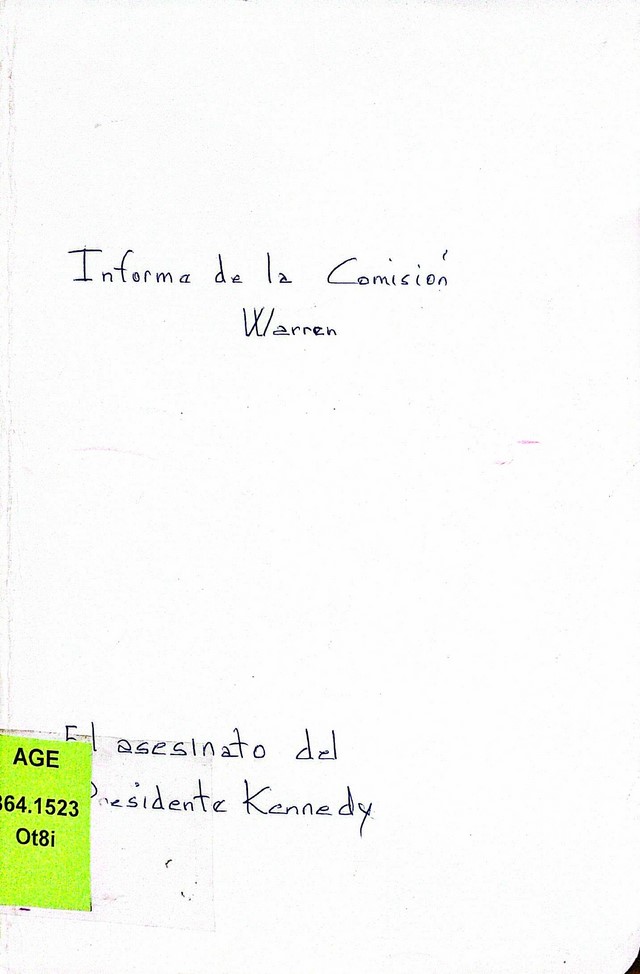 Informe de la Comisión
Warren
El asesinato del
Presidente Kennedy
AGE
364.1523
Ot8i